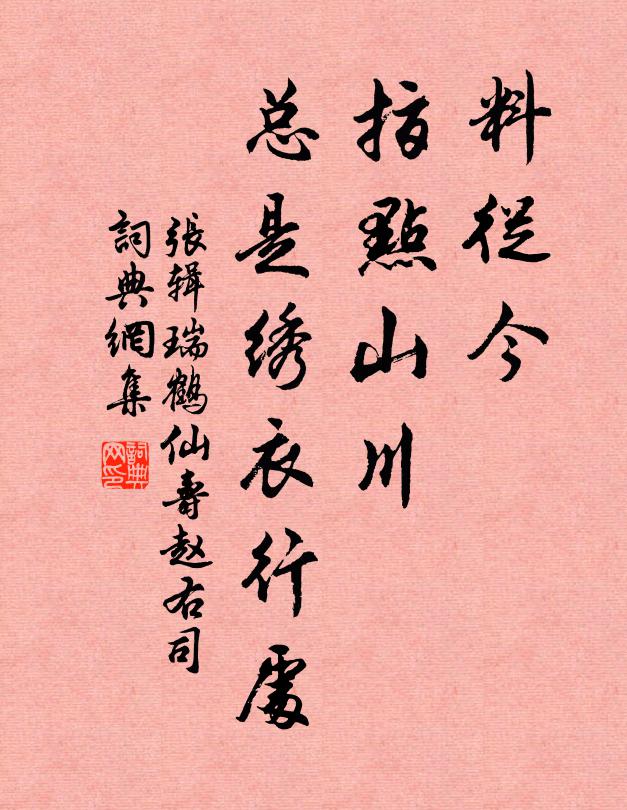 料從今
指點山川
总是绣衣行處
張辑瑞鶴仙壽赵右司
詞典網集
詞典
网印